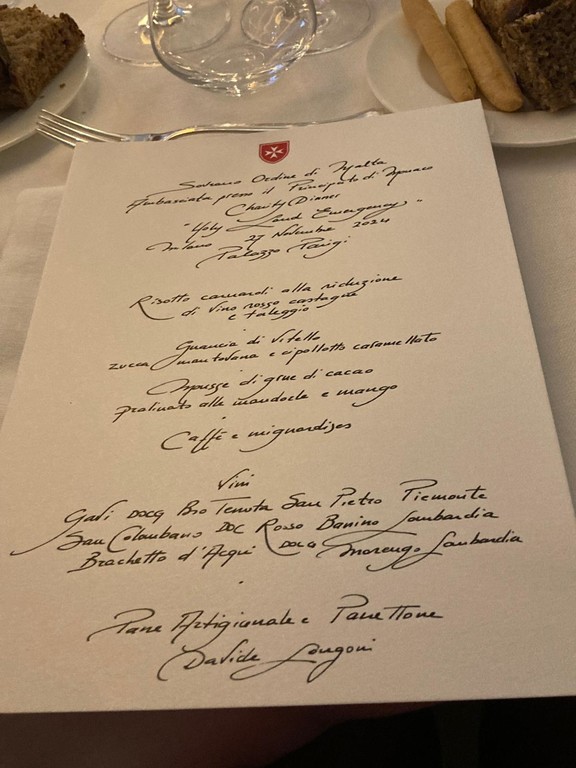 Sovrano Ordine di Malta
Ambasciata presso il Principato di Monaco
Charity Dinner
"Holy Land Emergency"
Milano 27 Novembre 2024
Palazzo Parigi
Risotto carnaroli alla riduzione
di vino rosso castagne
e taleggio
Guancia di vitello
zucca mantovana e cipollotto caramellato
Mousse di grue di cacao
pralinato alle mandorle e mango
Caffè e mignardises
Vini
Gavi DOCG Bio Tenuta San Pietro Piemonte
San Colombano DOC Rosso Banino Lombardia
Brachetto d'Acqui DOCG Marengo Lombardia
Pane Artigianale e Panettone
Davide Longoni